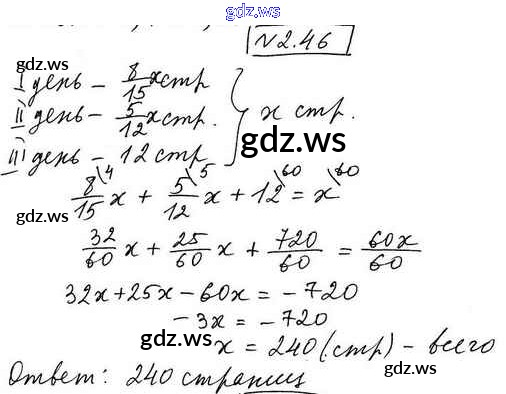 gdz.ws
N 2.46
gdz.ws
I день – 8/15 x стр
II день – 5/12 x стр. } x стр.
gdz.ws
III день – 12 стр
8/15 \4 x + 5/12 \5 x + 12 \60 = x \60
gdz.ws
32/60 x + 25/60 x + 720/60 = 60x/60
32x + 25x – 60x = – 720
– 3x = – 720
gdz.ws
x = 240 (стр) – всего
Ответ: 240 страниц
gdz.ws